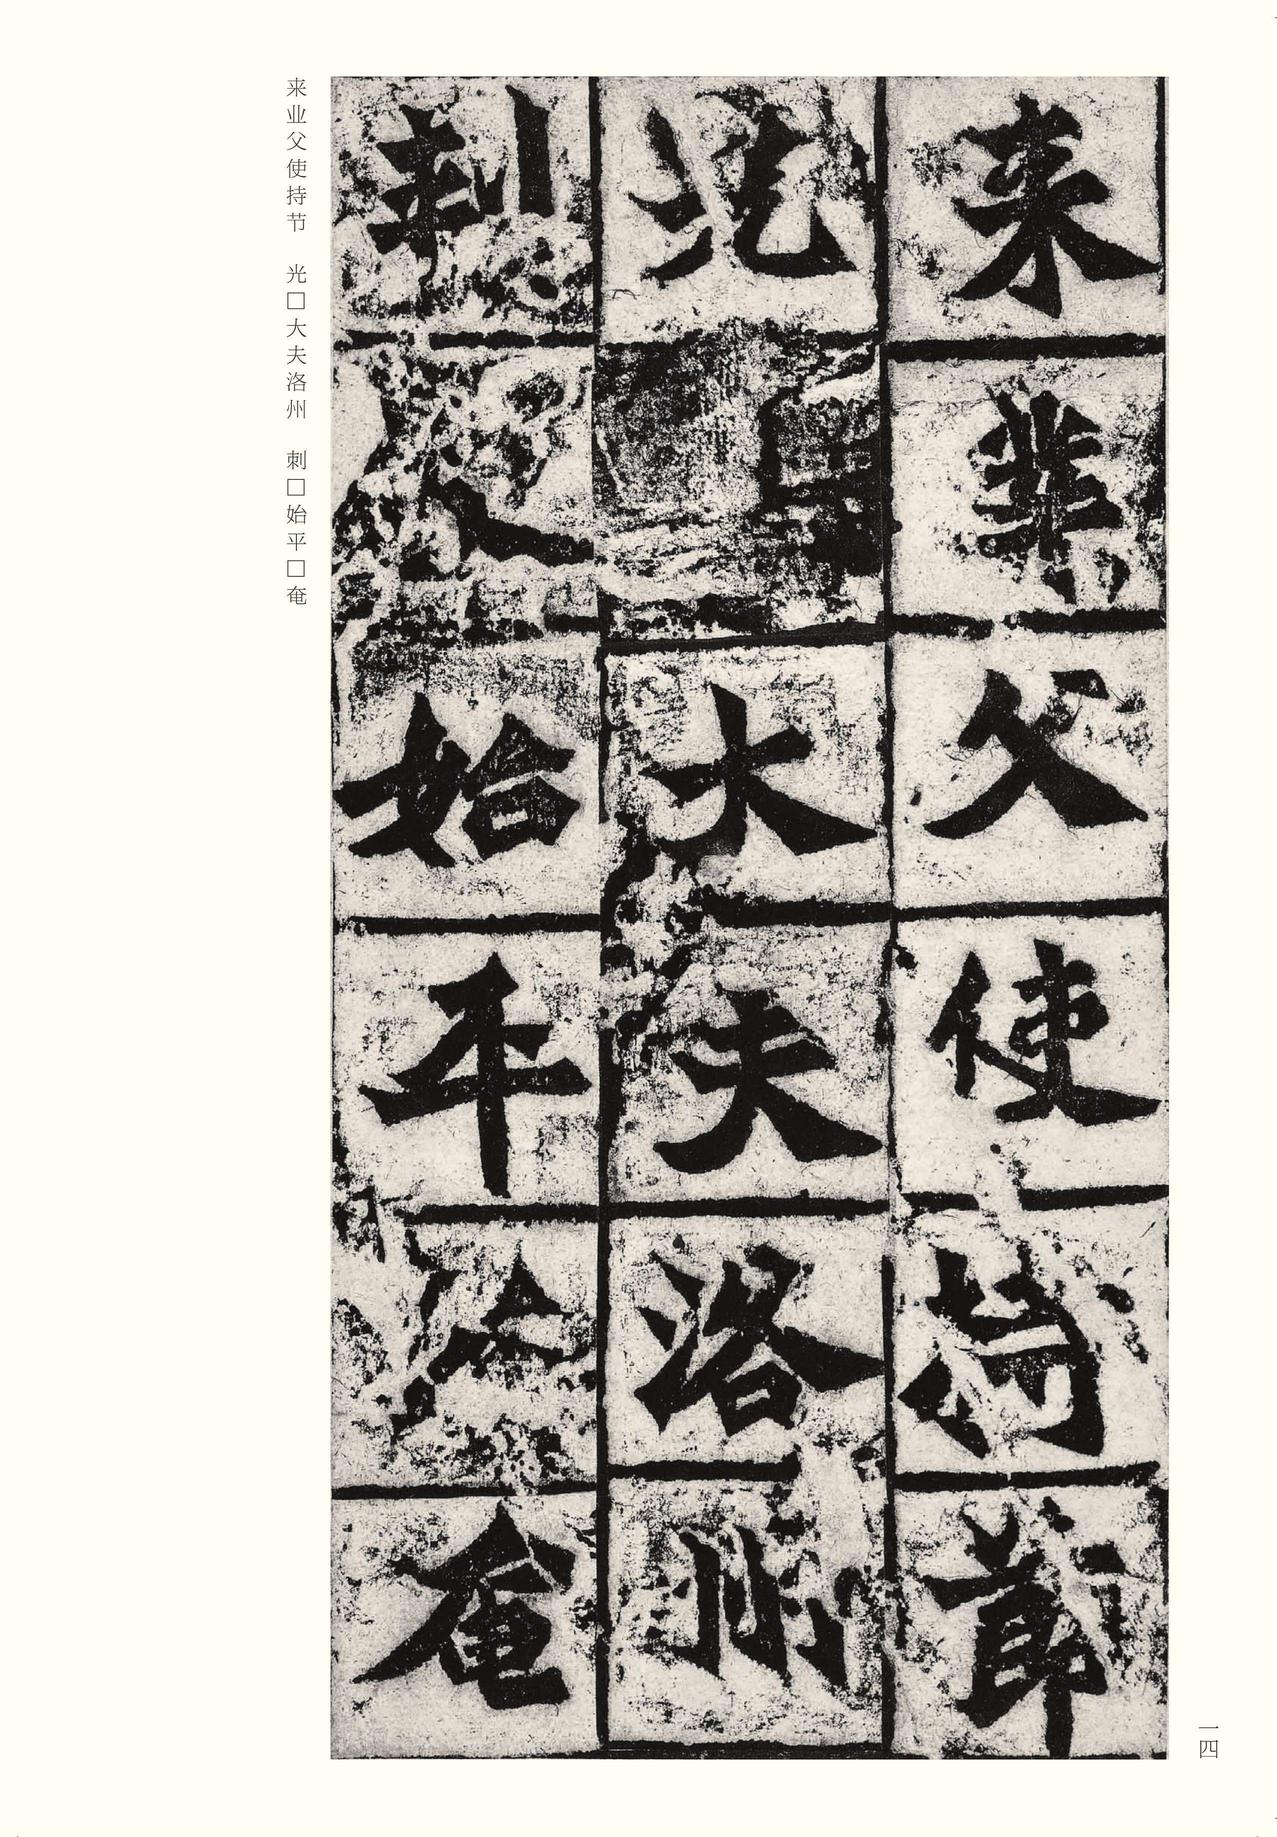 来業父使持節
光□大夫洛州
刺□始平□奄
来业父使持节　光□大夫洛州　刺□始平□奄
一四